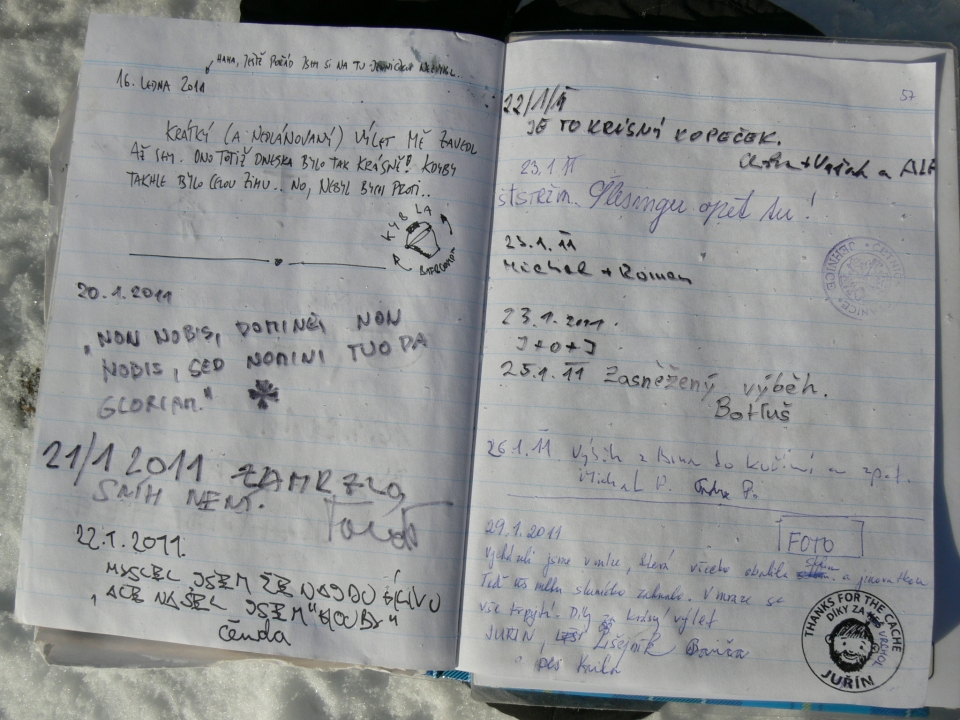 HAHA, JEŠTĚ POŘÁD JSEM SI NA TU JEDNIČKU NEZVYKL..
16. LEDNA 2011
KRÁTKÝ (A NEPLÁNOVANÝ) VÝLET MĚ ZAVEDL
AŽ SEM. ONO TOTIŽ DNESKA BYLO TAK KRÁSNĚ! KDYBY
TAKHLE BYLO CELOU ZIMU.. NO, NEBYL BYCH PROTI..
KYBLA
20.1.2011
„NON NOBIS, DOMINE, NON
NOBIS, SED NOMINI TUO DA
GLORIAM."
21/1 2011 ZAMRZLO,
SNÍH NENÍ.
22.1.2011.
MYSLEL JSEM ŽE NAJDU
, ALE NAŠEL JSEM
Čenda
57
22/1/11
JE TO KRÁSNÝ KOPEČEK.
a ALF
23.1.11
opět tu!
23.1.11
Michal + Roman
23.1.2011.
J+O+J
25.1.11 Zasněžený výběh.
Botluš
26.1.11. Výběh z Brna do Kuřimi a zpět.
Michal P. P.
FOTO
29.1.2011
Vycházeli jsme v mlze, která všecko obalila a jinovatkou
Teď nás sluníčko zahřálo. V mraze se
vše třpytí. Díky za krásný výlet
JUŘÍN, Lišejník
a pes
THANKS FOR THE CACHE
DÍKY ZA VRCHOL
JUŘÍN